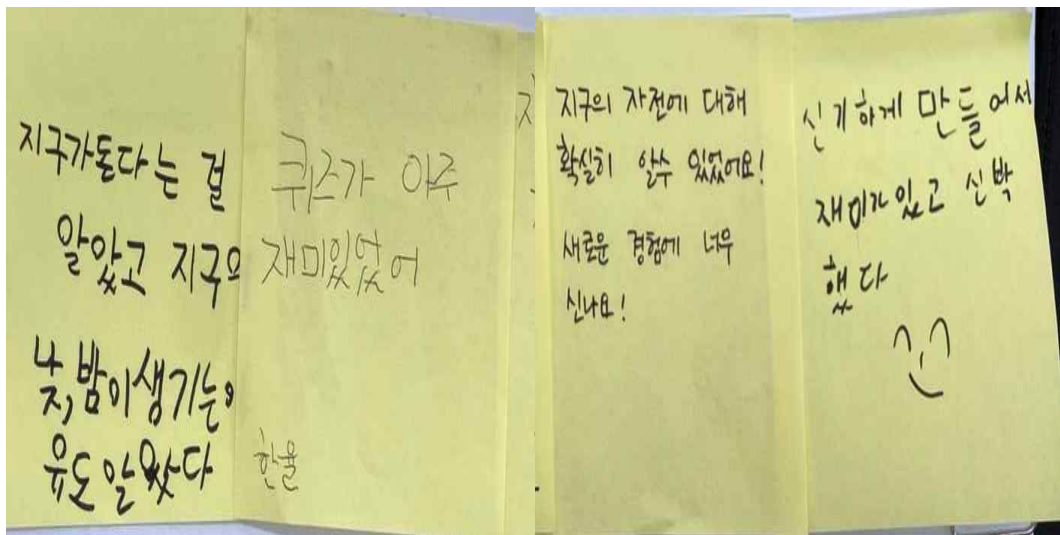 지구가돈다는 걸
알았고 지구의
낮,밤이생기는이
유도알았다
퀴즈가 아주
재미있었어
한율
지구의 자전에 대해
확실히 알수 있었어요!
새로운 경험에 너무
신나요!
신기하게 만들어서
재미가있고 신박
했다